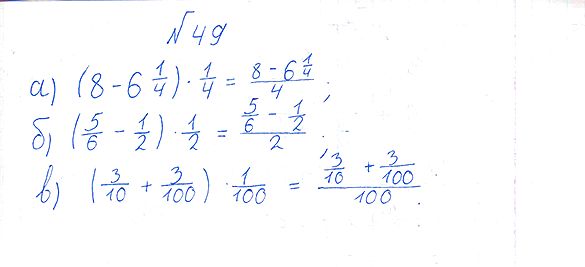 №49
а) (8 - 6 1/4) · 1/4 = (8 - 6 1/4)/4 ;
б) (5/6 - 1/2) · 1/2 = (5/6 - 1/2)/2 .
в) (3/10 + 3/100) · 1/100 = (3/10 + 3/100)/100 .